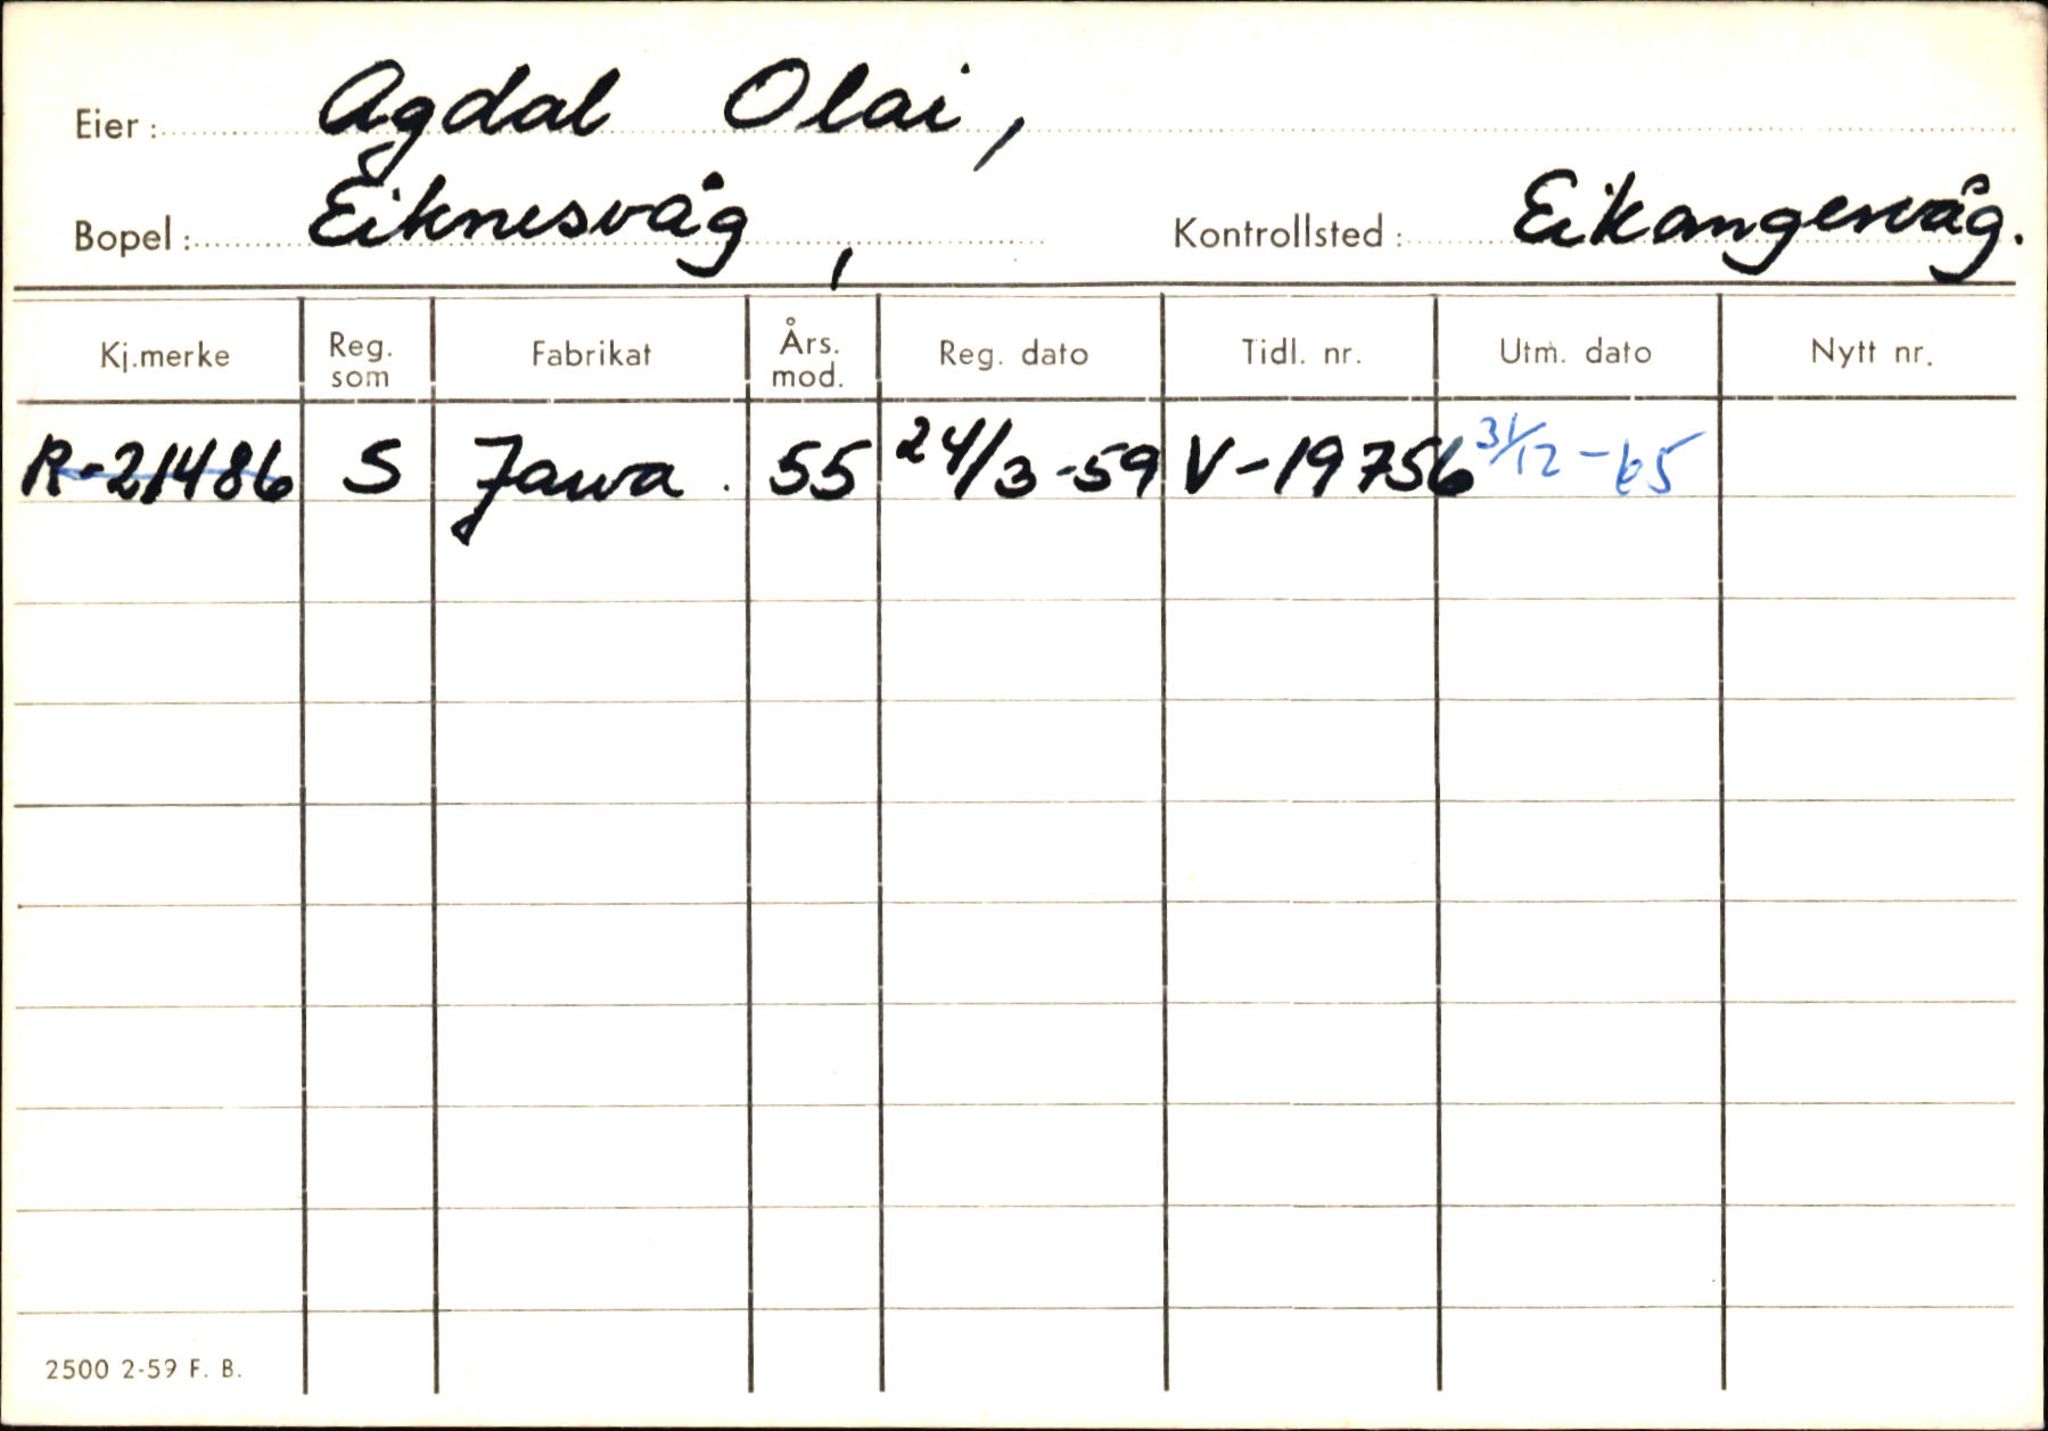 Eier: Agdal Olai,
Bopel: Eiknesvåg, Kontrollsted: Eikangervåg.
Kj.merke Reg. som Fabrikat Års. mod. Reg. dato Tidl. nr. Utm. dato Nytt nr.
R-21486 S Jawa. 55 24/3-59 V-19756 31/12-65
2500 2-59 F. B.